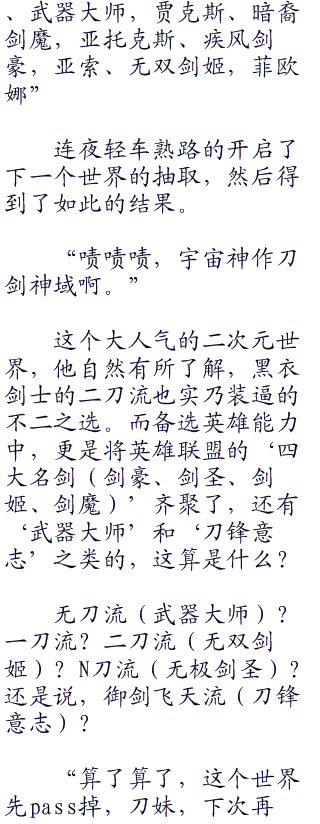 、武器大师，贾克斯、暗裔
剑魔，亚托克斯、疾风剑
豪，亚索、无双剑姬，菲欧
娜”
连夜轻车熟路的开启了
下一个世界的抽取，然后得
到了如此的结果。
“啧啧啧，宇宙神作刀
剑神域啊。”
这个大人气的二次元世
界，他自然有所了解，黑衣
剑士的二刀流也实乃装逼的
不二之选。而备选英雄能力
中，更是将英雄联盟的‘四
大名剑（剑豪、剑圣、剑
姬、剑魔）’齐聚了，还有
‘武器大师’和‘刀锋意
志’之类的，这算是什么？
无刀流（武器大师）？
一刀流？二刀流（无双剑
姬）？N刀流（无极剑圣）？
还是说，御剑飞天流（刀锋
意志）？
“算了算了，这个世界
先pass掉，刀妹，下次再